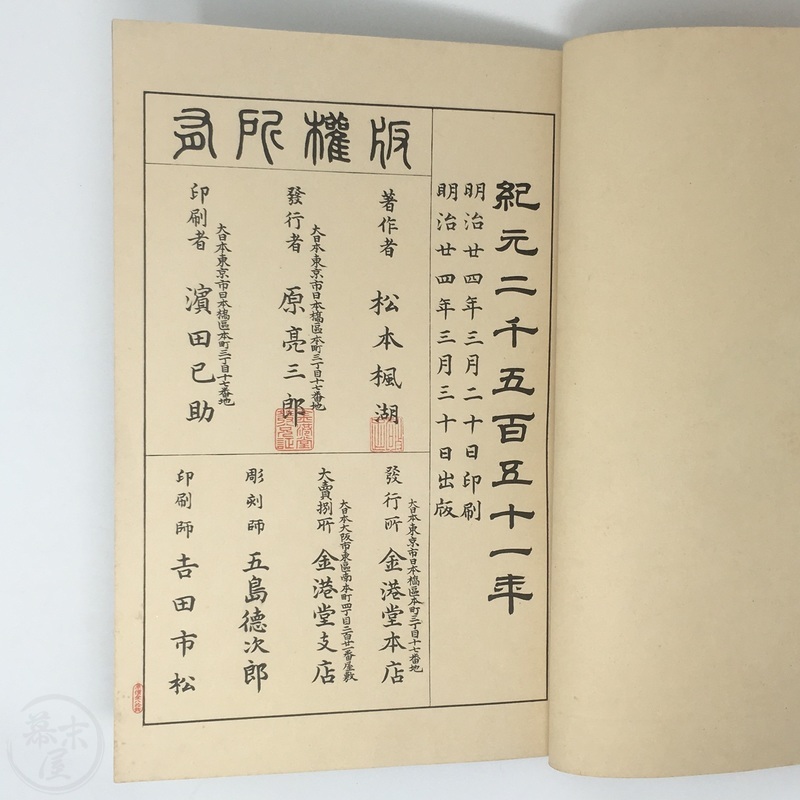 紀元二千五百五十一年
明治廿四年三月二十日印刷
明治廿四年三月三十日出版
版權所有
著作者 松本楓湖
大日本東京市日本橋區本町三丁目十七番地
發行者 原亮三郎
大日本東京市日本橋區本町三丁目十七番地
印刷者 濱田已助
大日本東京市日本橋區本町三丁目十七番地
發行所 金港堂本店
大日本大阪市東區南本町四丁目二百廿一番屋敷
大賣捌所 金港堂支店
彫刻師 五島德次郎
印刷師 吉田市松
幕末屋